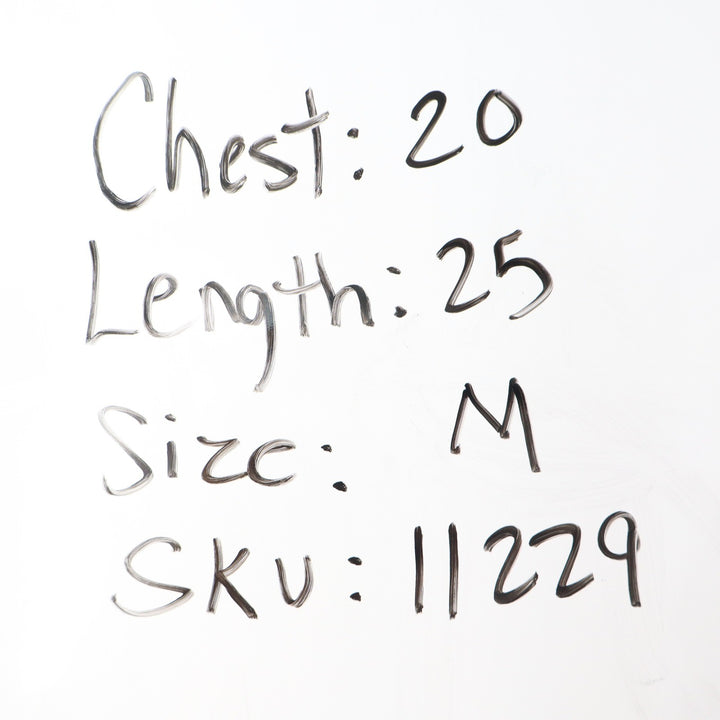 Chest: 20
Length: 25
Size: M
SKU: 11229